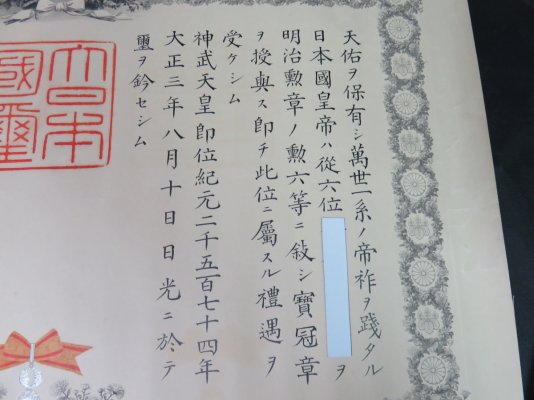 天佑ヲ保有シ萬世一系ノ帝祚ヲ踐タル
日本國皇帝ハ從六位
ヲ
明治勲章ノ勲六等ニ敍シ寶冠章
ヲ授與ス即チ此位ニ屬スル禮遇ヲ
受ケシム
神武天皇即位紀元二千五百七十四年
大正三年八月十日日光ニ於テ
璽ヲ鈐セシム
大日本
國璽